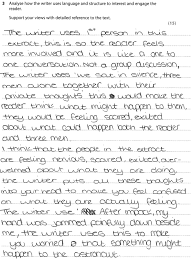 3 Analyse how the writer uses language and structure to interest and engage the reader.
Support your views with detailed reference to the text.
(15)
The writer uses 1st person in this
extract, this is so the reader feels
more involved and it is like a one to
one conversation. Not a group discussion,
The writer uses 'we sat in silence, three
men alone together with their
private thoughts' this would make the
reader think what might happen to them,
they would be feeling scared, excited
about what could happen both the reader
and three men.
I think that the people in the extract
are feeling nervous, scared, excited, over-
welmed about what they are doing,
the writer puts all these thoughts
into your head to make you feel confused
on what they are actually feeling.
The writer use 'After impact, my
hand was jammed painfully down beside
me, the writer uses this to make
you worried that something might
happen to the astronaut.